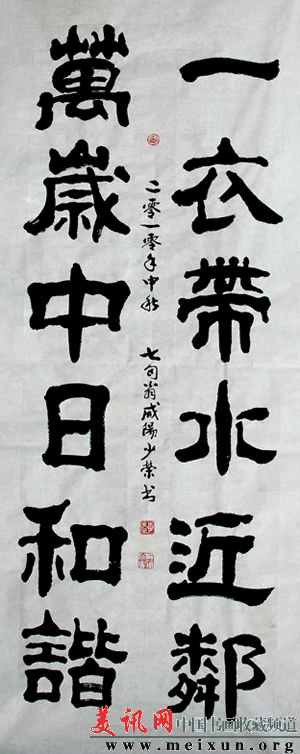 一衣帶水近鄰
萬歲中日和諧
二零一零年中秋
七旬翁咸陽少榮书
美讯网
中国书画收藏频道
www.meixun.org